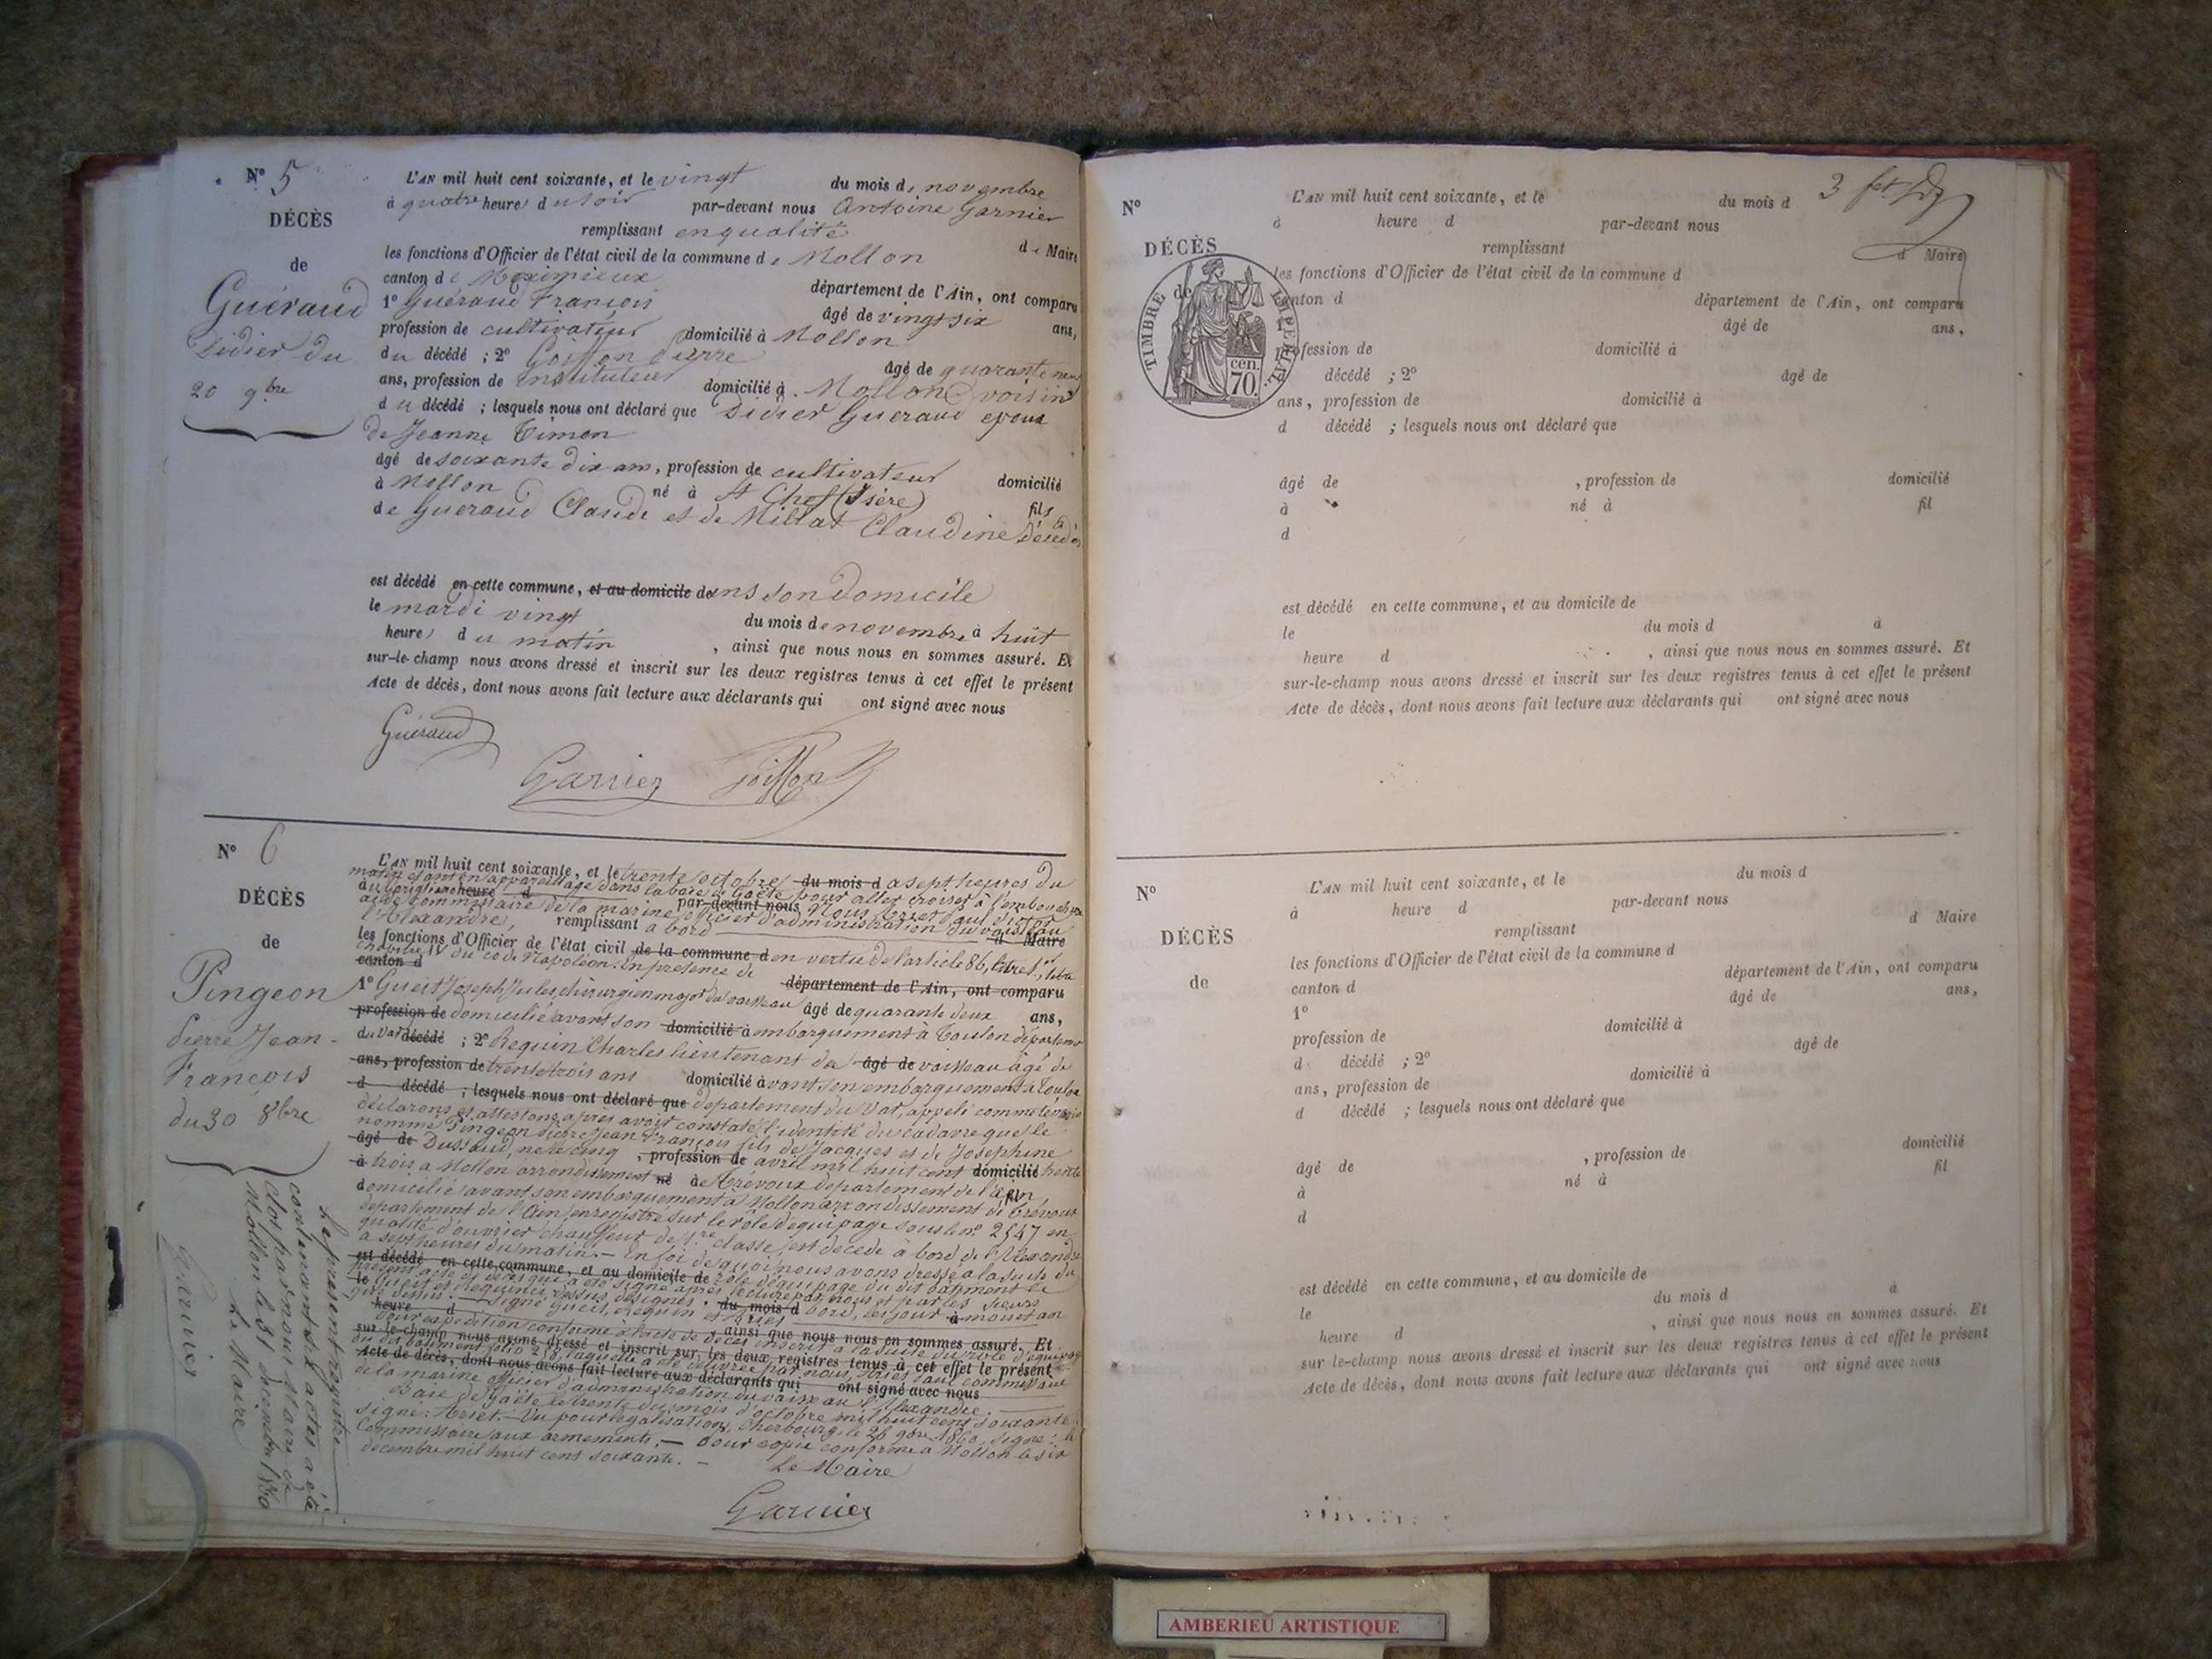 N° 5
DÉCÈS
de
Guéraud
Didier du
20 9bre
L'AN mil huit cent soixante, et le vingt du mois de novembre
à quatre heures du soir par-devant nous Antoine Garnier
remplissant en qualité de Maire
les fonctions d'Officier de l'état civil de la commune de Mollon
canton de Meximieux département de l'Ain, ont comparu
1° Guéraud François âgé de vingt six ans,
profession de cultivateur domicilié à Mollon
du décédé ; 2° Goiffon Pierre âgé de quarante neuf
ans, profession de Instituteur domicilié à Mollon voisin
du décédé ; lesquels nous ont déclaré que Didier Gueraud epoux
de Jeanne Timon
âgé de soixante dix ans, profession de cultivateur domicilié
à Mollon né à St Chef (Isère) fils
de Gueraud Claude et de Millat Claudine décédés
est décédé en cette commune, et au domicile dans son domicile
le mardi vingt du mois de novembre à huit
heures du matin, ainsi que nous nous en sommes assuré. Et
sur-le-champ nous avons dressé et inscrit sur les deux registres tenus à cet effet le présent
Acte de décès, dont nous avons fait lecture aux déclarants qui ont signé avec nous
Guéraud
Garnier Goiffon
N° 6
DÉCÈS
de
Pingeon
Pierre Jean-
François
du 30 8bre
L'AN mil huit cent soixante, et le trente octobre du mois d a sept heures du
matin étant en appareillage dans la baie de Gaëte pour aller croiser à l'embouchure
du Garigliano heure d par-devant nous Nous
aide commissaire de la marine officier d'administration du vaisseau
l'Alexandre, remplissant a bord d Maire
les fonctions d'Officier de l'état civil de la commune d en vertu de l'article 86, titre 1er
chapitre IV du code Napoléon. En présence de
canton d département de l'Ain, ont comparu
1° Gueit Joseph Jules, chirurgien major du vaisseau âgé de quarante deux ans,
profession de domicilié avant son domicilié à embarquement à Toulon département
du Var décédé ; 2° Requin Charles lieutenant de âgé de vaisseau âgé de
ans, profession de trente trois ans domicilié à avant son embarquement à Toulon
d décédé ; lesquels nous ont déclaré que département du Var, appelé comme témoin
déclarons et attestons après avoir constaté l'identité du cadavre que le
nommé Pingeon Pierre Jean François fils de Jacques et de Josephine
âgé de Dussaud, né le cinq , profession de avril mil huit cent domicilié trente
à trois a Mollon arrondissement né à de Trevoux département de l'Ain, fil
domicilié avant son embarquement à Mollon arrondissement de Trévoux
département de l'Ain, enregistré sur le rôle d'équipage sous le n° 2547 en
qualité d'ouvrier chauffeur de 1re classe, est décédé à bord de l'Alexandre
a sept heures du matin. — En foi de quoi nous avons dressé a la suite du
est décédé en cette commune, et au domicile de rôle d'équipage du dit batiment le
présent acte de décès qui a été signé après lecture par nous et par les sieurs
le Gueit et Requin ci-dessus désignés. du mois d bord, les jour à mois et an
que dessus. Signé Gueit, Requin et
heure d
Pour expédition conforme à l'acte de décès inscrit à la suite du rôle d'équipage
ainsi que nous nous en sommes assuré. Et
sur-le-champ nous avons dressé et inscrit sur les deux registres tenus à cet effet le présent
du dit batiment folio 218, laquelle a été délivrée par nous,
Acte de décès, dont nous avons fait lecture aux déclarants qui ont signé avec nous
de la marine officier d'administration du vaisseau l'Alexandre.
Baie de Gaëte le trente du mois d'octobre mil huit cent soixante.
signé: Vu pour légalisation, Cherbourg le 26 9bre 1860. Signé: le
Commissaire aux armements. — Pour copie conforme a Mollon le six
décembre mil huit cent soixante. —
Le Maire
Garnier
Le présent registre
contenant six actes a été
clos par nous Maire de
Mollon le 31 décembre 1860
Le Maire
Garnier
3
N°
DÉCÈS
de
TIMBRE IMPERIAL
cen.
70.
L'AN mil huit cent soixante, et le du mois d
à heure d par-devant nous
remplissant d Maire
les fonctions d'Officier de l'état civil de la commune d
canton d département de l'Ain, ont comparu
1° âgé de ans,
profession de domicilié à
d décédé ; 2° âgé de
ans, profession de domicilié à
d décédé ; lesquels nous ont déclaré que
âgé de , profession de domicilié
à né à fil
d
est décédé en cette commune, et au domicile de
le du mois d à
heure d , ainsi que nous nous en sommes assuré. Et
sur-le-champ nous avons dressé et inscrit sur les deux registres tenus à cet effet le présent
Acte de décès, dont nous avons fait lecture aux déclarants qui ont signé avec nous
N°
DÉCÈS
de
L'AN mil huit cent soixante, et le du mois d
à heure d par-devant nous
remplissant d Maire
les fonctions d'Officier de l'état civil de la commune d
canton d département de l'Ain, ont comparu
1° âgé de ans,
profession de domicilié à
d décédé ; 2° âgé de
ans, profession de domicilié à
d décédé ; lesquels nous ont déclaré que
âgé de , profession de domicilié
à né à fil
d
est décédé en cette commune, et au domicile de
le du mois d à
heure d , ainsi que nous nous en sommes assuré. Et
sur le-champ nous avons dressé et inscrit sur les deux registres tenus à cet effet le présent
Acte de décès, dont nous avons fait lecture aux déclarants qui ont signé avec nous
AMBERIEU ARTISTIQUE